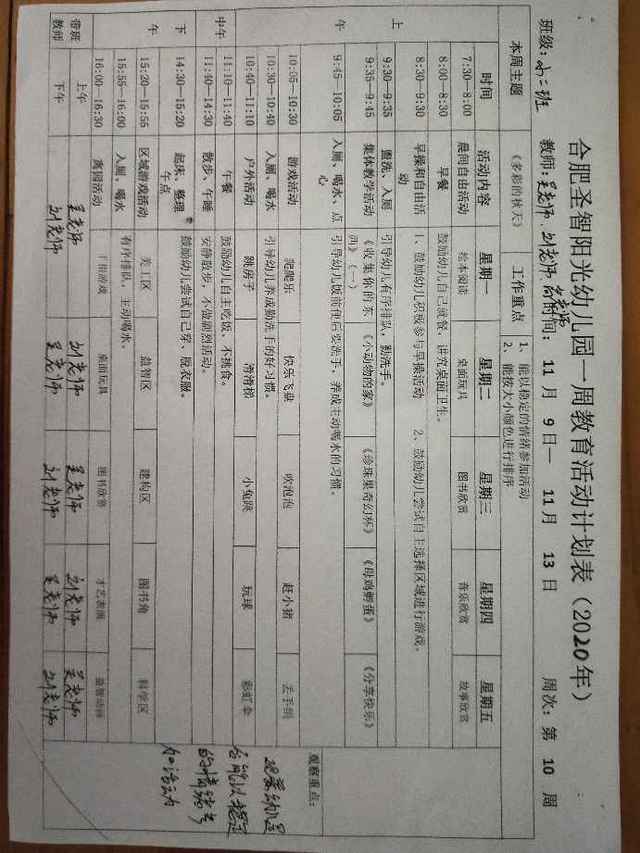 合肥圣智阳光幼儿园一周教育活动计划表（2020年）
班级：小二班 教师：吴老师、刘老师、 时间：11月9日—11月13日 周次：第10周
本周主题 《多彩的秋天》 工作重点 1、能以稳定的情绪参加活动
2、能按大小颜色进行排序
时间 活动内容 星期一 星期二 星期三 星期四 星期五
上午
7:30—8:00 晨间自由活动 绘本阅读 桌面玩具 图书欣赏 音乐欣赏 故事欣赏
8:00—8:30 早餐 鼓励幼儿自己就餐，讲究桌面卫生。
8:30—9:30 早操和自由活动 1、鼓励幼儿积极参与早操活动 2、鼓励幼儿尝试自主选择区域进行游戏。
9:30—9:35 盥洗、入厕 引导幼儿有序排队，勤洗手。
9:35—9:45 集体教学活动 《收集你的东西》（一） 《小动物的家》 《珍珠果奇幻杯》 《母鸡孵蛋》 《分享快乐》
9:45—10:05 入厕、喝水、点心 引导幼儿饭前便后要洗手，养成主动喝水的习惯。
10:05—10:30 游戏活动 爬爬乐 快乐飞盘 吹泡泡 赶小猪 丢手绢
10:30—10:40 入厕、喝水 引导幼儿养成勤洗手的好习惯。
10:40—11:10 户外活动 跳房子 滑滑梯 小兔跳 玩球 彩虹伞
中午
11:10—11:40 午餐 鼓励幼儿自主吃饭，不挑食。
11:40—14:30 散步、午睡 安静散步，不做剧烈活动。
下午
14:30—15:20 起床、整理、午点 鼓励幼儿尝试自己穿、脱衣服。
15:20—15:55 区域游戏活动 美工区 益智区 建构区 图书角 科学区
15:55—16:00 入厕、喝水 有序排队，主动喝水。
16:00—16:30 离园活动 手指游戏 桌面玩具 图书欣赏 才艺表演 益智动画
带班教师 上午 吴老师 刘老师 吴老师 刘老师 吴老师
下午 刘老师 吴老师 刘老师 吴老师 刘老师
观察重点：
观察幼儿是
否能以稳定
的情绪参
加活动